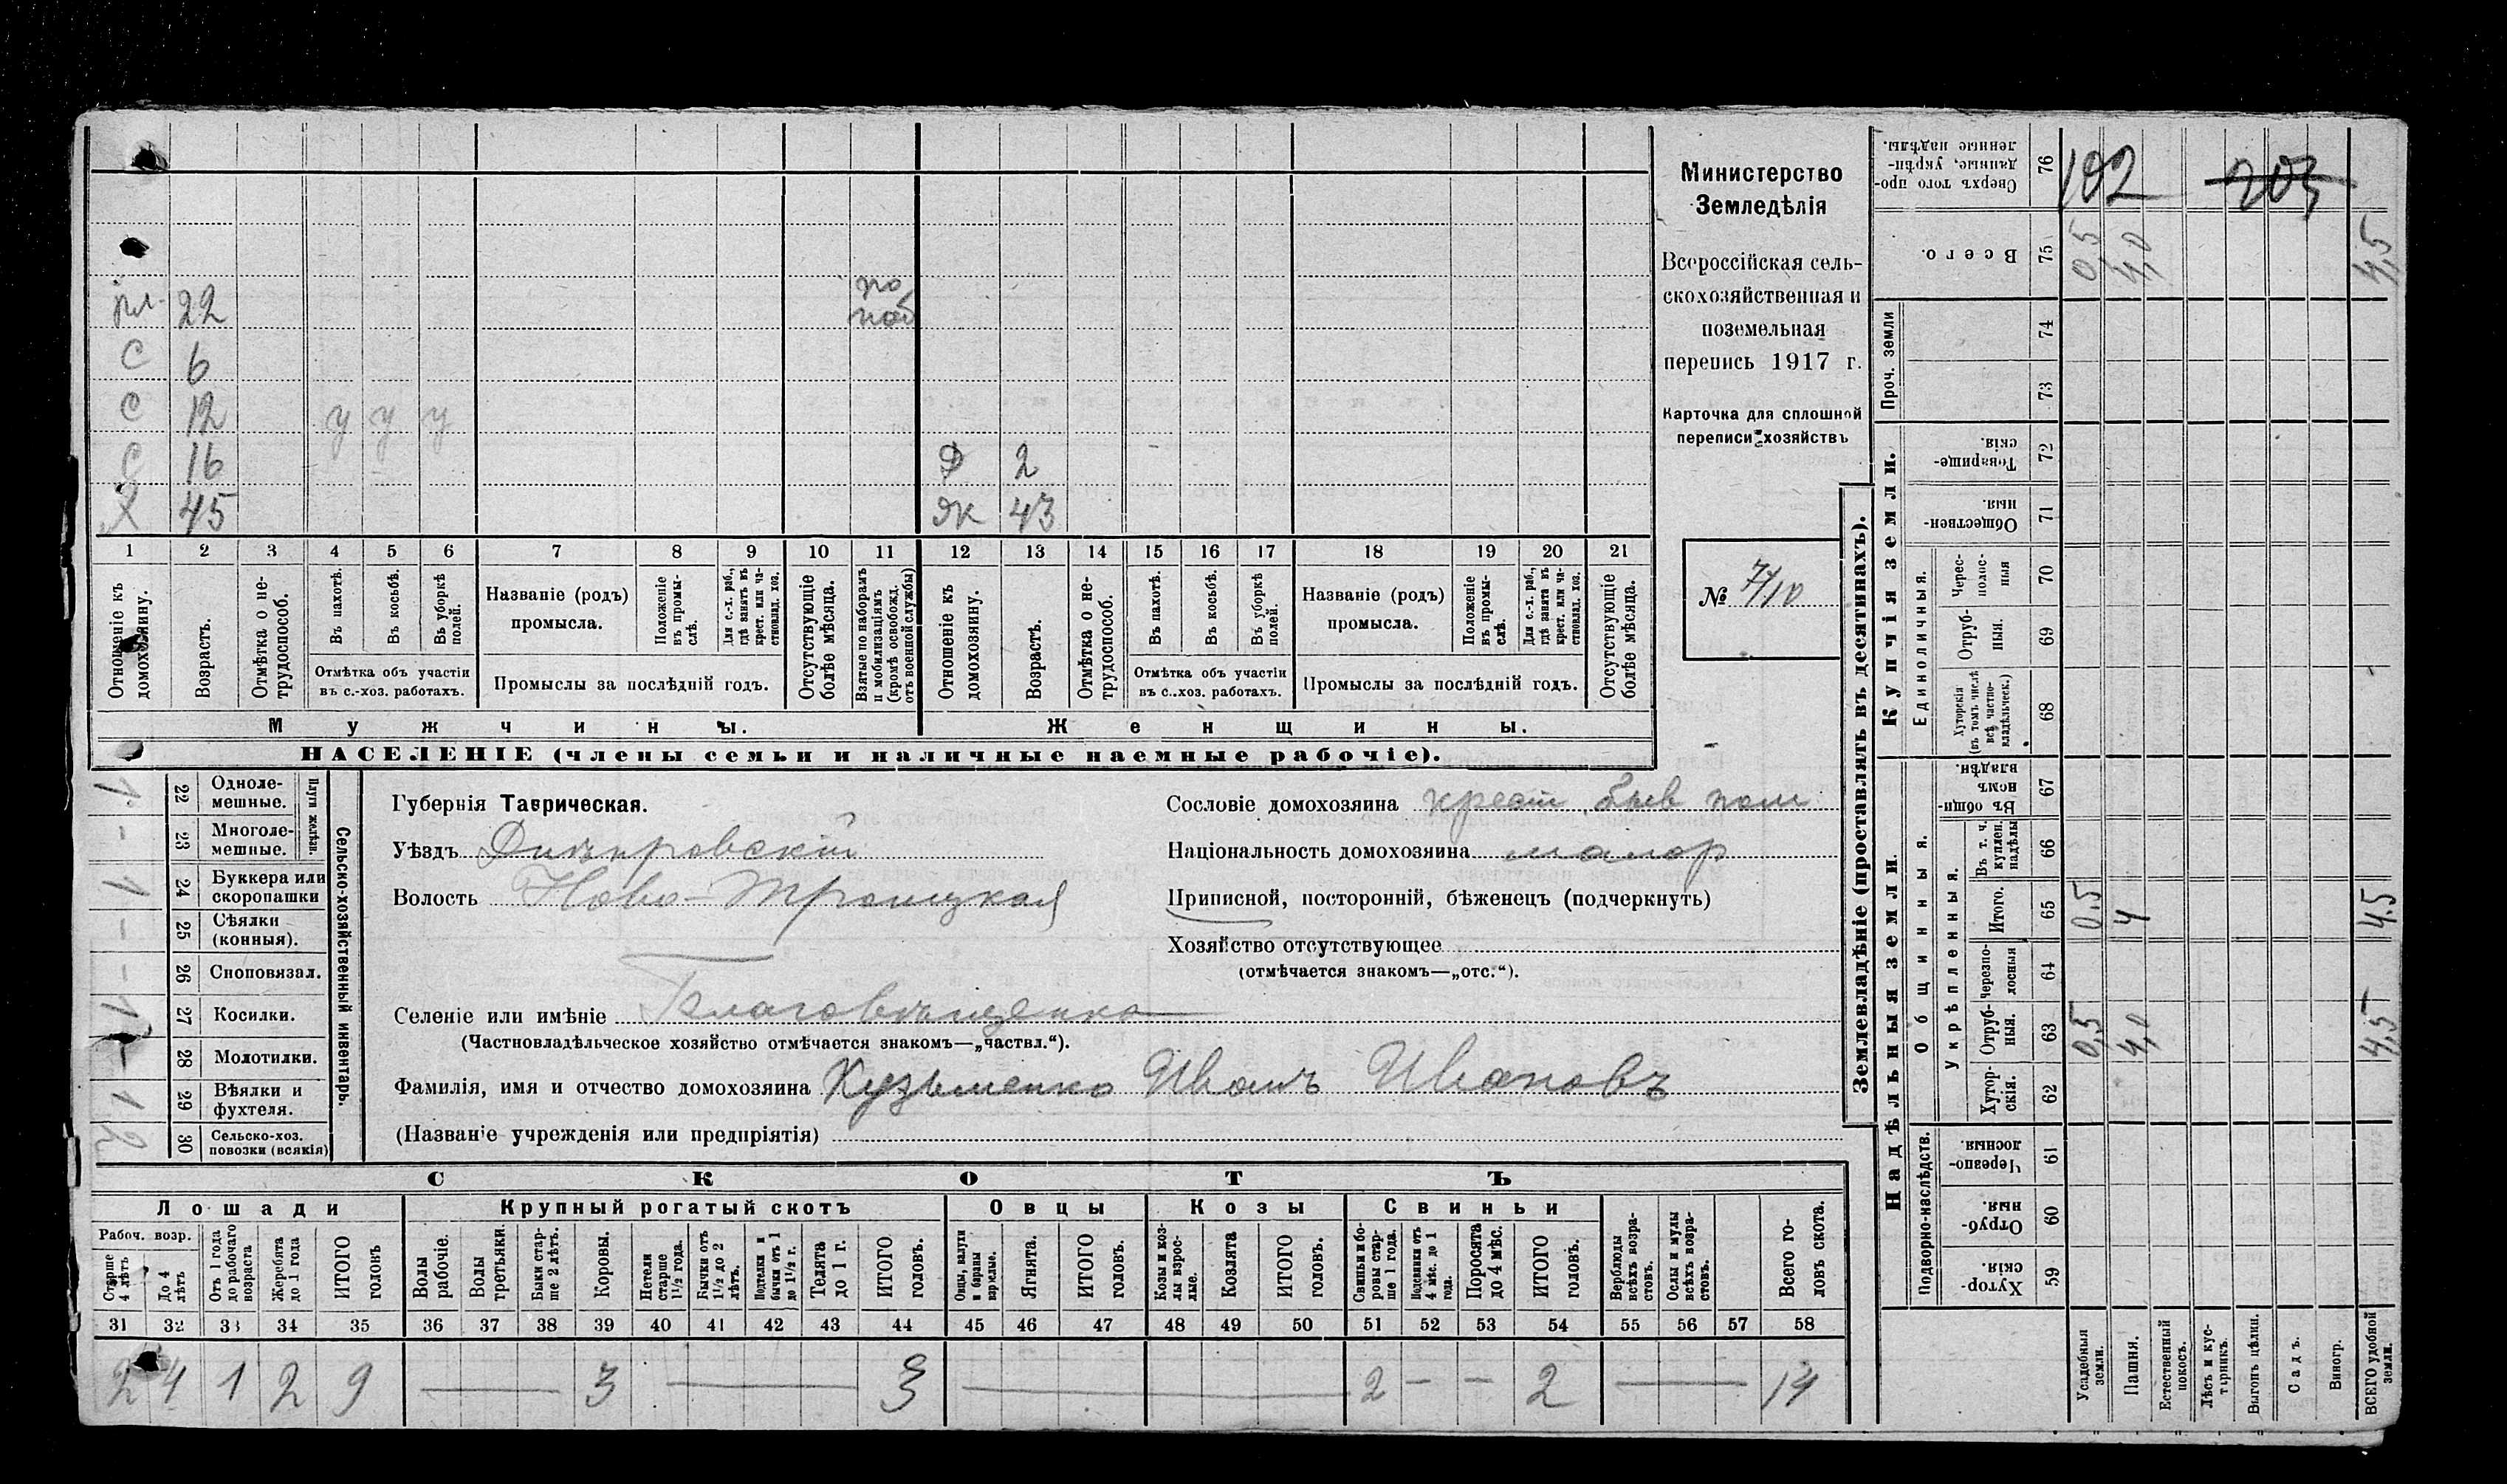 Министерство
Земледѣлія
Всероссійская сель-
скохозяйственная и
поземельная
перепись 1917 г.
Карточка для сплошной
переписи хозяйствъ
№ 7/10
пл. 22 по
моб
С 6
С 12 у у у
С 16 Д 2
Х 45 Ж 43
1 2 3 4 5 6 7 8 9 10 11 12 13 14 15 16 17 18 19 20 21
Отношеніе къ домохозяину.
Возрастъ.
Отмѣтка о не-трудоспособ.
Въ пахотѣ.
Въ косьбѣ.
Въ уборкѣ полей.
Отмѣтка объ участіи
въ с.-хоз. работахъ.
Названіе (родъ)
промысла.
Положеніе въ промы-слѣ.
Для с.-х. раб., гдѣ занятъ въ крест. или ча-стновлад. хоз.
Промыслы за послѣдній годъ.
Отсутствующіе болѣе мѣсяца.
Взятые по наборамъ и мобилизаціямъ (кромѣ освобожд. отъ военной службы)
Отношеніе къ домохозяину.
Возрастъ.
Отмѣтка о не-трудоспособ.
Въ пахотѣ.
Въ косьбѣ.
Въ уборкѣ полей.
Отмѣтка объ участіи
въ с..хоз. работахъ.
Названіе (родъ)
промысла.
Положеніе въ промы-слѣ.
Для с.-х. раб., гдѣ занята въ крест. или ча-стновлад. хоз.
Промыслы за послѣдній годъ.
Отсутствующіе болѣе мѣсяца.
Мужчины.
Женщины.
НАСЕЛЕНІЕ (члены семьи и наличные наемные рабочіе).
Сельско-хозяйственный инвентарь.
Плуги желѣзн.
1 22 Одноле-мешные.
- 23 Многоле-мешные.
1 24 Буккера или скоропашки
- 25 Сѣялки (конныя).
- 26 Сноповязал.
1 27 Косилки.
- 28 Молотилки.
1 29 Вѣялки и фухтеля.
2 30 Сельско-хоз. повозки (всякія)
Губернія Таврическая.
Уѣздъ Днѣпровскій
Волость Ново-Троицкая
Селеніе или имѣніе Благовѣщенка
(Частновладѣльческое хозяйство отмѣчается знакомъ—„частвл.“).
Фамилія, имя и отчество домохозяина Кузьменко Иванъ Ивановъ
(Названіе учрежденія или предпріятія)
Сословіе домохозяина крест быв пом
Національность домохозяина малор
Приписной, посторонній, бѣженецъ (подчеркнуть)
Хозяйство отсутствующее
(отмѣчается знакомъ—„отс.“).
СКОТЪ
Лошади Крупный рогатый скотъ Овцы Козы Свиньи
Рабоч. возр.
Старше 4 лѣтъ
До 4 лѣтъ
Отъ 1 года до рабочаго возраста
Жеребята до 1 года
ИТОГО головъ
Волы рабочіе.
Волы третьяки.
Быки стар-ше 2 лѣтъ.
Коровы.
Нетели старше 1½ года.
Бычки отъ 1½ до 2 лѣтъ.
Подтелки и бычки отъ 1 до 1½ г.
Телята до 1 г.
ИТОГО головъ.
Овцы, валухи и бараны взрослые.
Ягнята.
ИТОГО головъ.
Козы и коз-лы взрос-лые.
Козлята
ИТОГО головъ.
Свиньи и бо-ровы стар-ше 1 года.
Подсвинки отъ 4 мѣс. до 1 года.
Поросята до 4 мѣс.
ИТОГО головъ.
Верблюды всѣхъ возра-стовъ.
Ослы и мулы всѣхъ возра-стовъ.
Всего го-ловъ скота.
31 32 33 34 35 36 37 38 39 40 41 42 43 44 45 46 47 48 49 50 51 52 53 54 55 56 57 58
2 4 1 2 9 — 3 — 3 — 2 - - 2 — 14
Землевладѣніе (проставлять въ десятинахъ).
Надѣльныя земли.
Купчія земли.
Проч. земли
Подворно-наслѣдств.
Общинныя.
Укрѣпленныя.
Единоличныя.
Сверхъ того про-данные, укрѣп-ленные надѣлы. 76 192 203
Всего. 75 0,5 4,0 4,5
74
73
Товарище-скія. 72
Обществен-ныя 71
Черес-полос-ныя 70
Отруб-ныя. 69
Хуторскія (въ томъ числѣ всѣ частно-владѣльческ.) 68
Въ общи-номъ владѣн. 67
Въ т. ч. куплен. надѣлы 66
Итого. 65 0,5 4 4,5
Черезпо-лосныя 64
Отруб-ныя. 63 0,5 4,0 4,5
Хутор-скія. 62
Черезпо-лосныя 61
Отруб-ныя 60
Хутор-скія. 59
Усадебныя земли.
Пашня.
Естественный покосъ.
Лѣсъ и кус-тарникъ.
Выгонъ цѣлин.
Садъ.
Виногр.
ВСЕГО удобной земли.